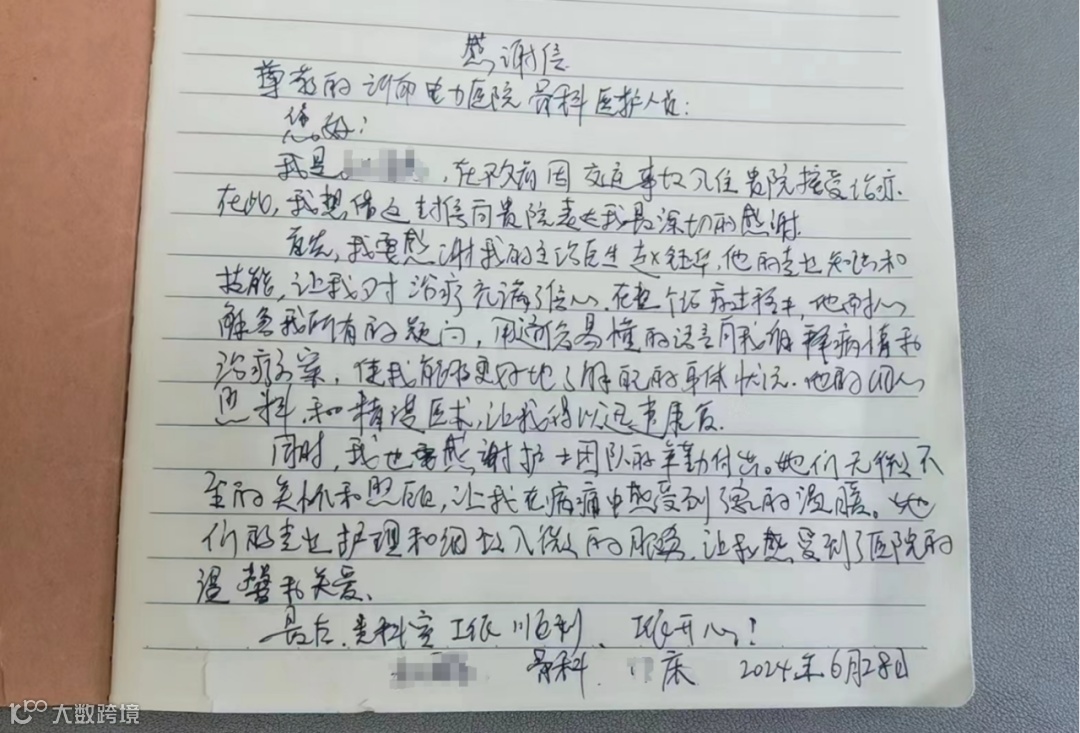 感谢信
尊敬的 电力医院骨科医护人员：
您好：
我是 ，在 因交通事故入住贵院接受治疗.
在此，我想借这封信向贵院表达我最深切的感谢.
首先，我要感谢我的主治医生赵 华，他的专业知识和
技能，让我对治疗充满了信心.在整个治疗过程中，他耐心
解答我所有的疑问，用通俗易懂的语言向我解释病情和
治疗方案，使我能够更好地了解 的身体状况.他的细心
照料和精湛医术，让我得以迅速康复.
同时，我也要感谢护士团队的辛勤付出。她们无微不
至的关怀和照顾，让我在病痛中感受到 的温暖。她
们的专业护理和细致入微的服务，让我感受到了医院的
温馨和关爱、
最后，贵科室工作顺利、 开心！
骨科. 床 2024年6月28日
大数跨境